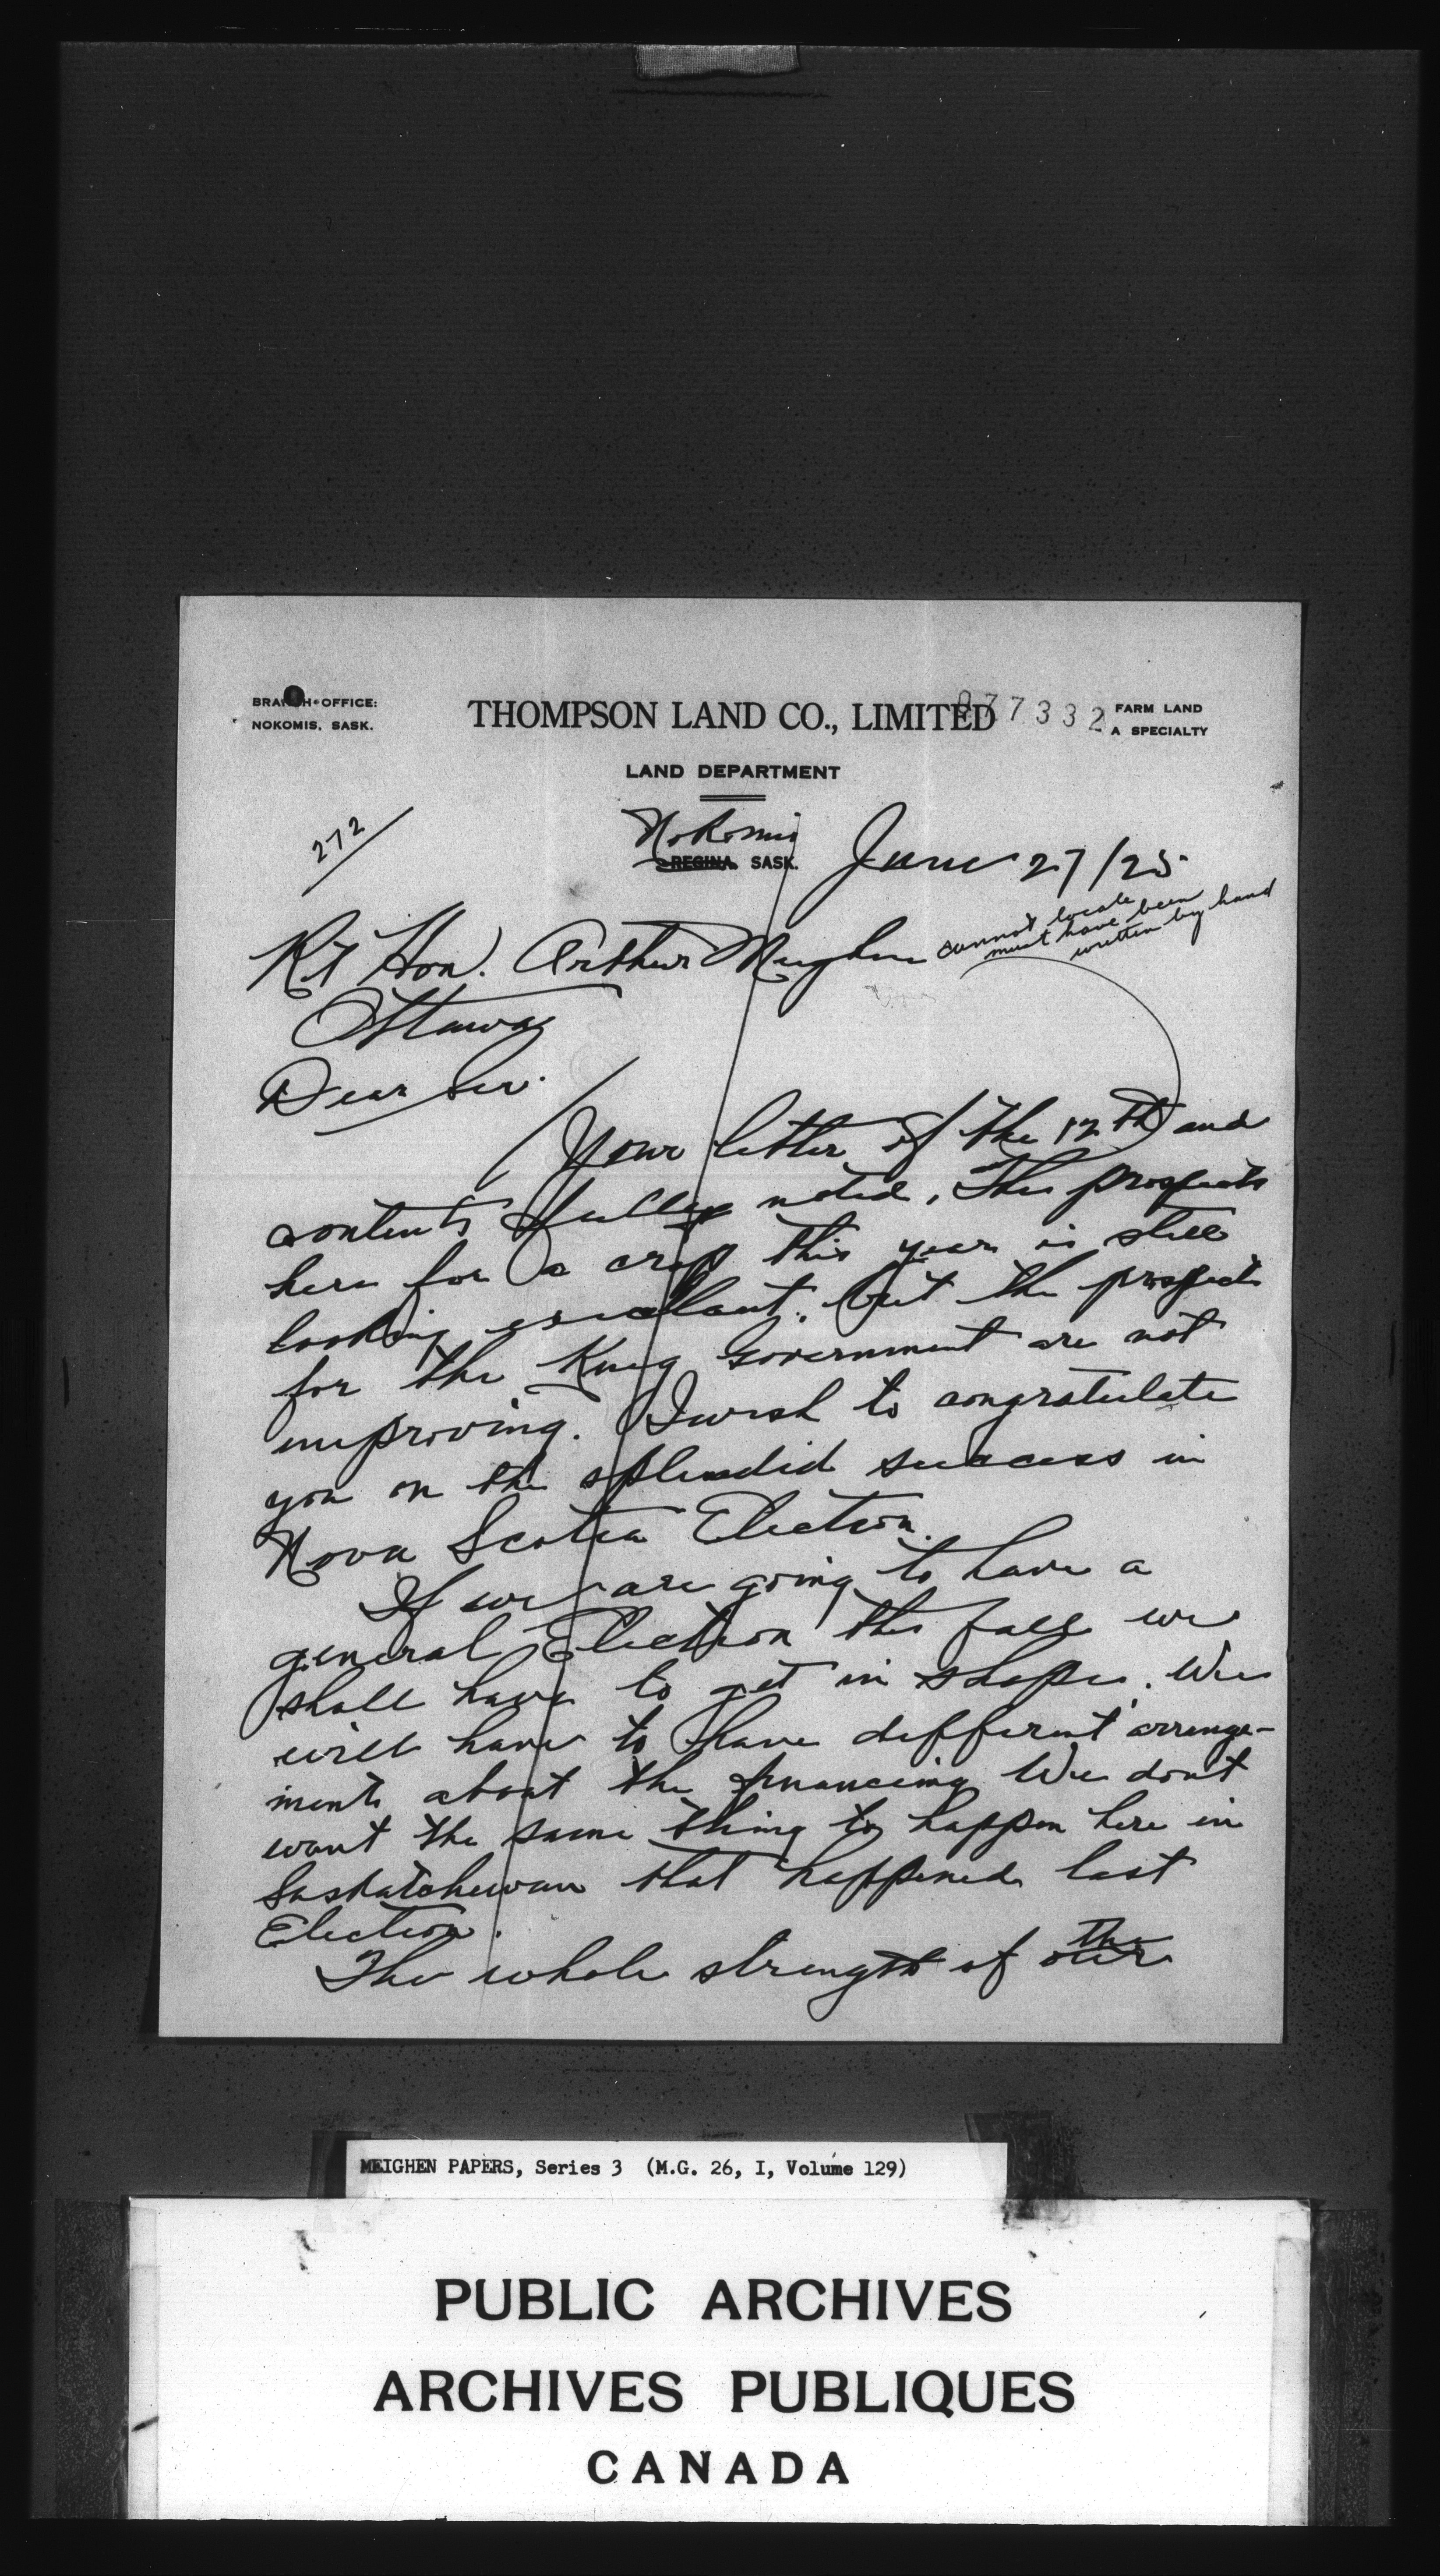 BRANCH OFFICE:
NOKOMIS, SASK.
THOMPSON LAND CO., LIMITED
077332
FARM LAND
A SPECIALTY
LAND DEPARTMENT
272
Nokomis
REGINA, SASK.
June 27/25
Rt Hon. Arthur Meighen
cannot locate
must have been
written by hand
Ottawa
Dear Sir.
Your letter of the 12th and
contents fully noted. The prospects
here for a crop this year is still
looking excellant. But the prospects
for the King Government are not
improving. I wish to congratulate
you on the splendid success in
Nova Scotia Election.
If we are going to have a
general Election this fall we
shall have to get in shape. We
will have to have different arrange-
ments about the financing We dont
want the same thing to happen here in
Saskatchewan that happened last
Election.
The whole strength of our the
MEIGHEN PAPERS, Series 3 (M.G. 26, I, Volume 129)
PUBLIC ARCHIVES
ARCHIVES PUBLIQUES
CANADA